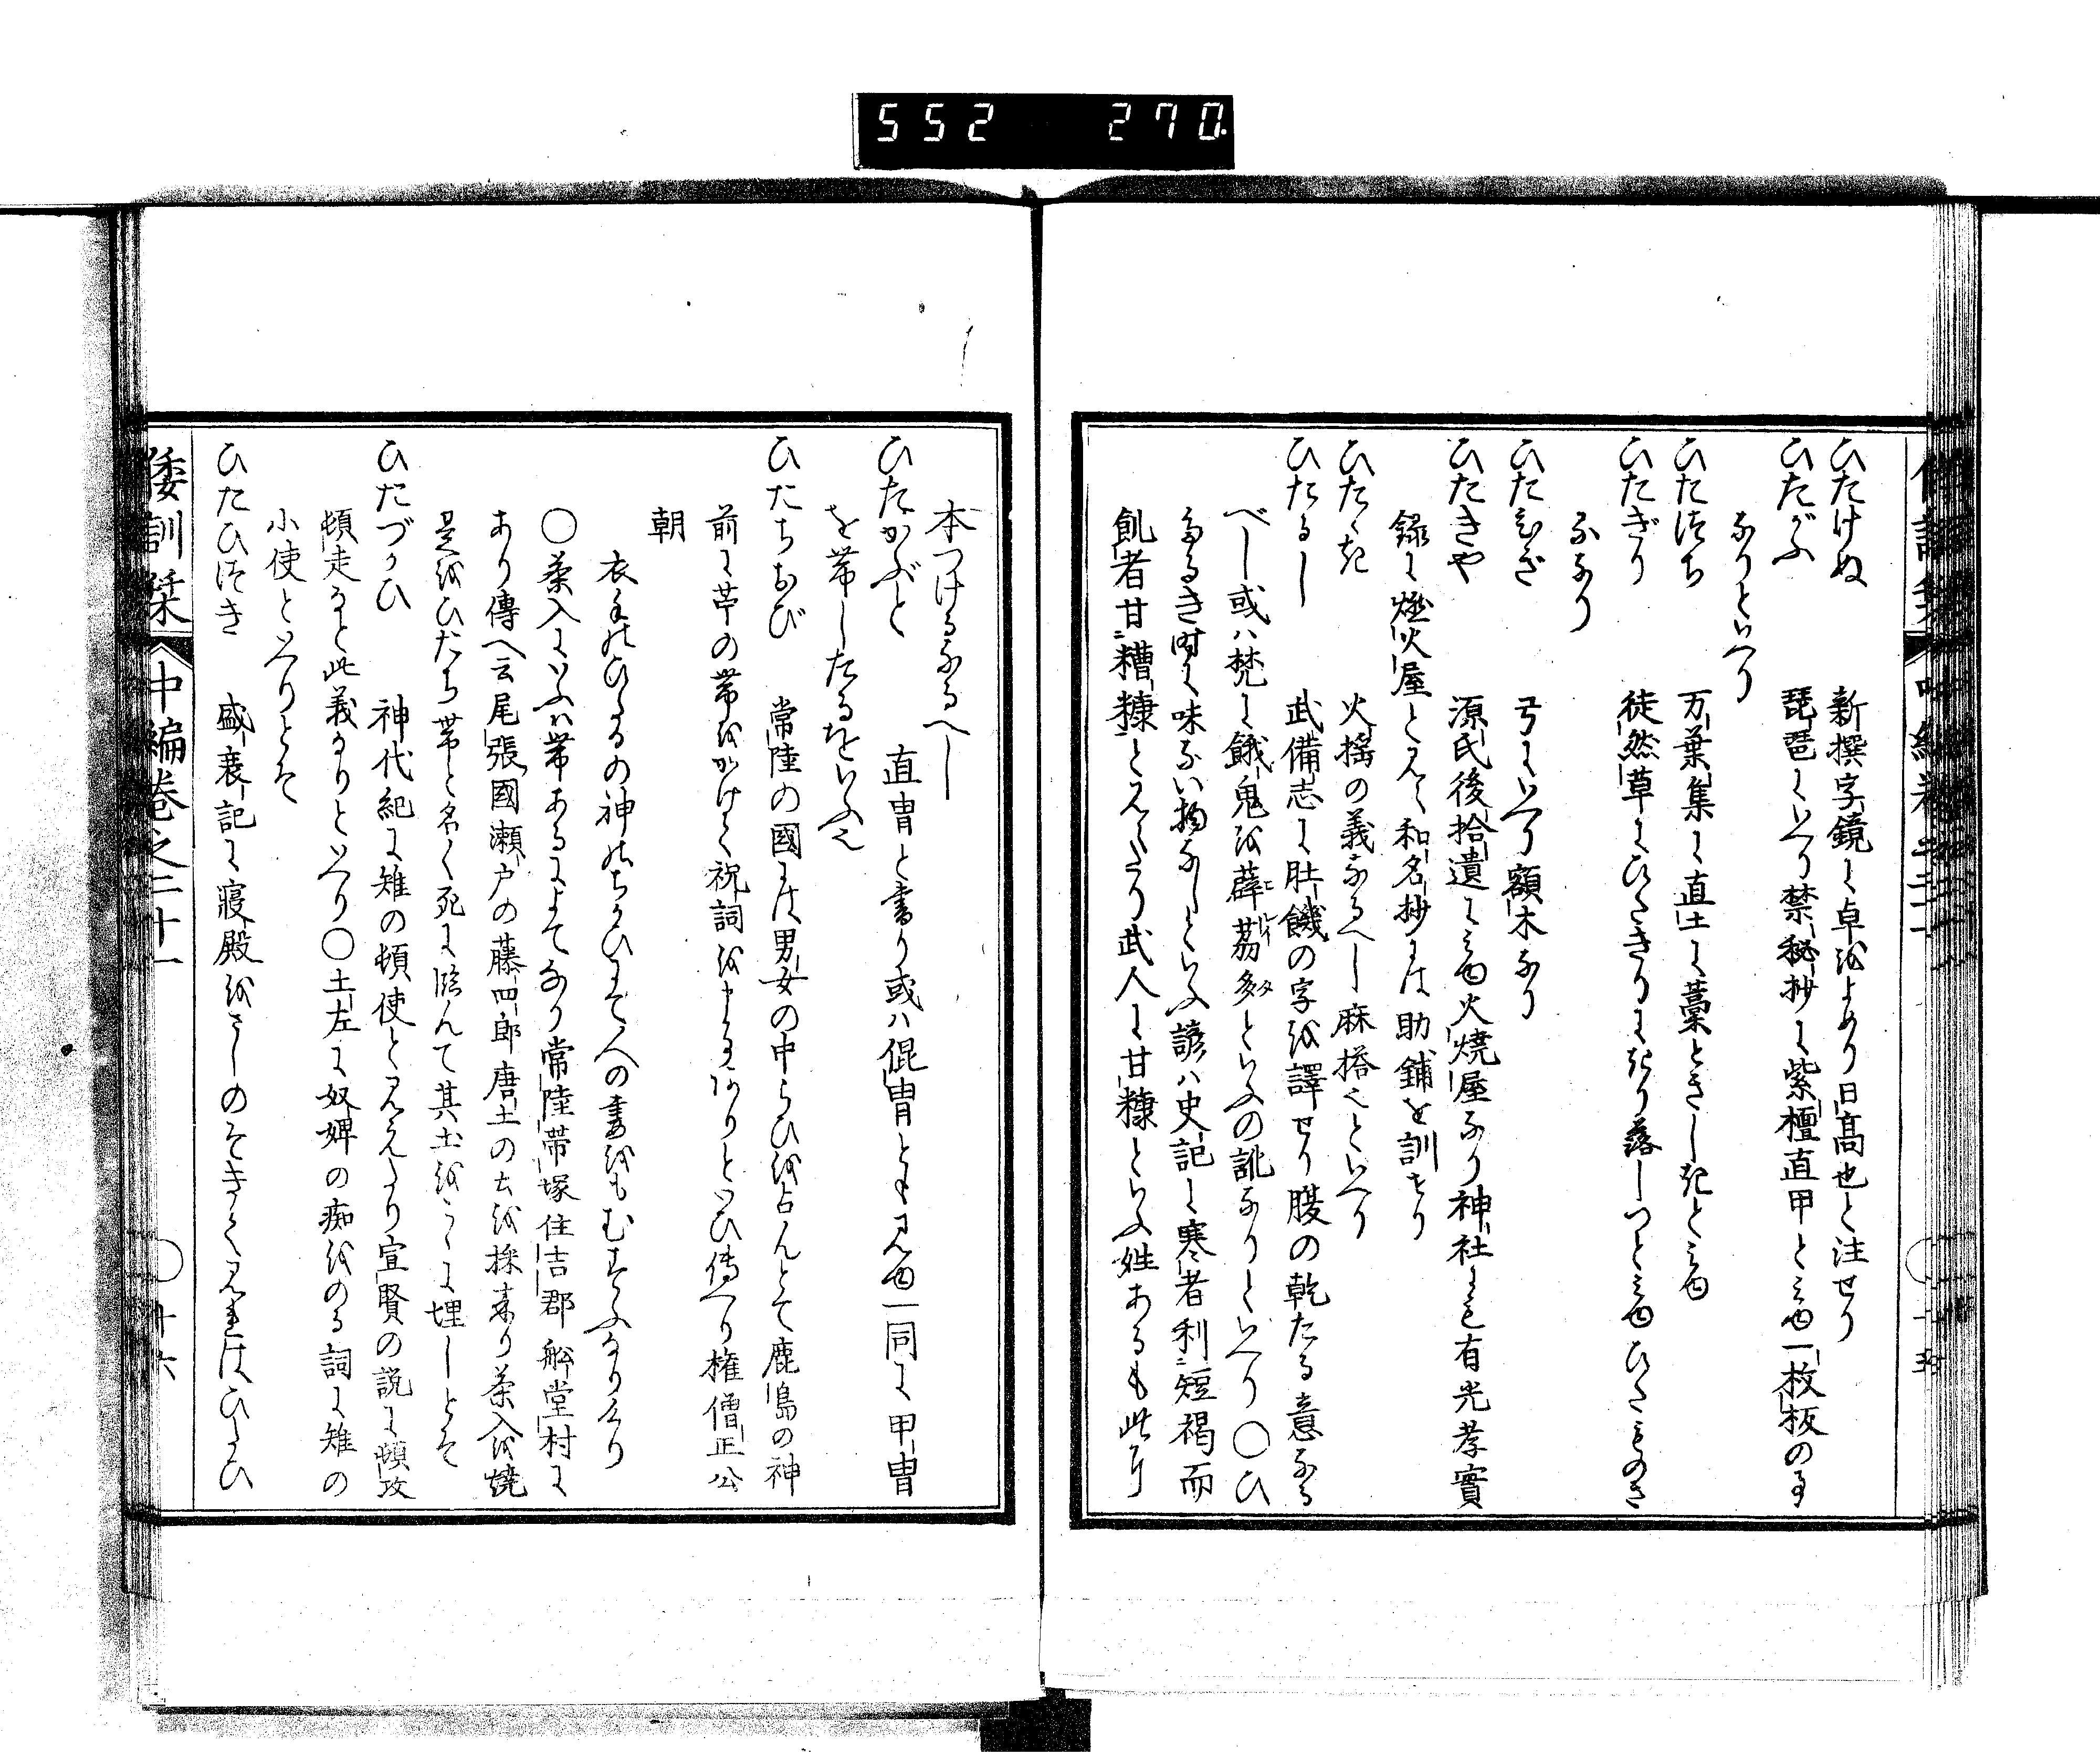 552 270
ひたけぬ 新撰字鏡に卓をよめり日高也と注せり
ひたがふ 琵琶にいへり禁秘抄に紫檀直甲と見ゆ一枚板の事
なりといへり
ひたつち 万葉集に直土に藁ときしきと見ゆ
ひたぎり 徒然草にひたきりにきり落しつと見ゆひたものき
るなり
ひたひぎ 弓にいへり額木なり
ひたきや 源氏後拾遺に見ゆ火焼屋なり神社にも有光孝實
録に爐火屋と見え和名抄には助鋪を訓せり
ひたゝき 火搖の義なるへし麻搭也といへり
ひたるし 武備志に肚饑の字を譯せり腹の乾たる意なる
べし或ハ梵に餓鬼を薜茘多といふの訛なりといへり〇ひ
たるき時に味ない物なしといふ諺ハ史記に寒者利短褐而
飢者甘糟糠と見えたり武人に甘糠といふ姓あるも此か
本つけるなるへし
ひたかぶと 直冑と書り或ハ倱冑とも見ゆ一同に甲冑
を帯したるをいふ也
ひたちおび 常陸の國には男女の中らひを占んとて鹿島の神
前に苧の帯をかけて祝詞を申す事ありといひ傳へり権僧正公
朝
衣手のひたちの神のちかひにて人の妻をもむすふなりけり
〇茶入にいふハ帯あるによてなり常陸帯塚住吉郡船堂村に
あり傳へ云尾張國瀬戸の藤四郎唐土の土を採来り茶入を焼
是をひたち帯と名く死に臨んて其土をこゝに埋しとそ
ひたづかひ 神代紀に雉の頓使と見えたり宣賢の説に頓改
頓走なと此義なりといへり〇土左に奴婢の痴をのる詞に雉の
小使といへりとそ
ひたひつき 盛衰記に寝殿をさしのそきて見れはひたひ
倭訓栞 中編巻之二十一 〇十六